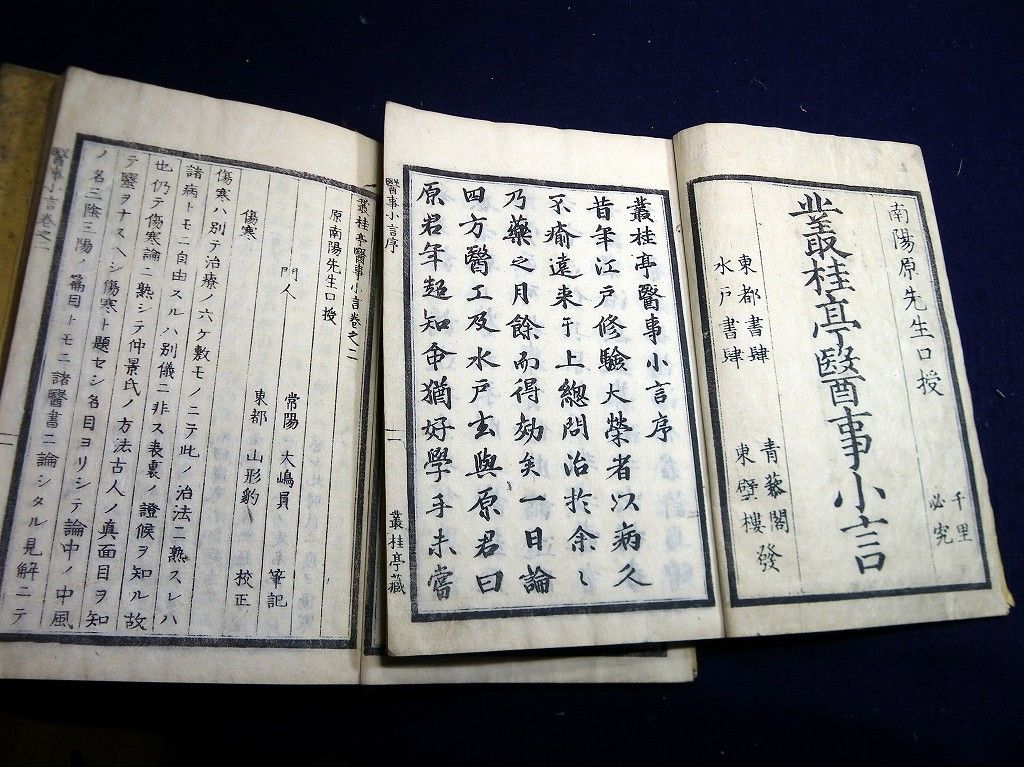 南陽原先生口授
叢桂亭醫事小言
千里
必究
東都書肆 青藜閣
水戸書肆 東壁樓 發
叢桂亭醫事小言序
昔年江戸修驗大榮者以病久
不瘉遠来于上總問治於余〻
乃藥之月餘而得効矣一日論
四方醫工及水戸玄與原君曰
原君年超知命猶好學手未嘗
醫事小言序 叢桂亭藏
叢桂亭醫事小言卷之二
原南陽先生口授
門人 常陽 大嶋員 筆記
東都 山形豹 校正
傷寒
傷寒ハ別テ治療ノ六ケ敷モノニテ此ノ治法ニ熟スレハ
諸病トモニ自由スルハ別儀ニ非ス表裏ノ證候ヲ知ル故
也仍テ傷寒論ニ熟シテ仲景氏ノ方法古人ノ真面目ヲ知
テ醫ヲナスヘシ傷寒ト題セシ名目ヨリシテ論中ノ中風
ノ名三陰三陽ノ篇目トモニ諸醫書ニ論シタル見解ニテ
醫事小言卷之二